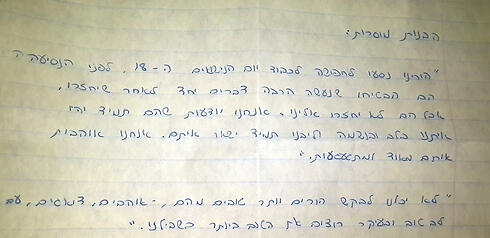 הבנות מוסרות:
"הורינו נסעו לחופשה לכבוד יום הנישואים ה-18. לפני הנסיעה
הם הבטיחו שנעשה הרבה דברים יחד לאחר שיחזרו,
אבל הם לא יחזרו אלינו. אנחנו יודעות שהם תמיד יהיו
איתנו בלב ובנשמה וליבנו תמיד ישאר איתם. אנחנו אוהבות
אותם מאוד ומתגעגעות."
"לא יכלנו לבקש הורים יותר טובים מהם, - אוהבים, דואגים, עם
לב טוב ובעיקר רוצים את הטוב ביותר בשבילנו."